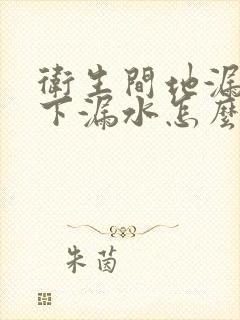 衛生間地漏
下漏水怎麼
朱茵